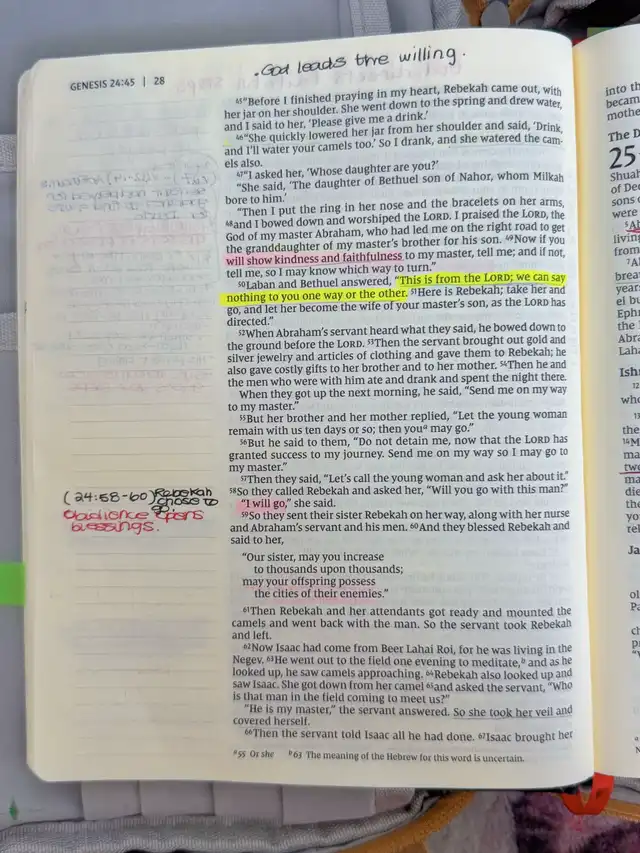 GENESIS 24:45 | 28
. God leads the willing.
45“Before I finished praying in my heart, Rebekah came out, with
her jar on her shoulder. She went down to the spring and drew water,
and I said to her, ‘Please give me a drink.’
46“She quickly lowered her jar from her shoulder and said, ‘Drink,
and I’ll water your camels too.’ So I drank, and she watered the cam-
els also.
47“I asked her, ‘Whose daughter are you?’
“She said, ‘The daughter of Bethuel son of Nahor, whom Milkah
bore to him.’
“Then I put the ring in her nose and the bracelets on her arms,
48and I bowed down and worshiped the LORD. I praised the LORD, the
God of my master Abraham, who had led me on the right road to get
the granddaughter of my master’s brother for his son. 49Now if you
will show kindness and faithfulness to my master, tell me; and if not,
tell me, so I may know which way to turn.”
50Laban and Bethuel answered, “This is from the LORD; we can say
nothing to you one way or the other. 51Here is Rebekah; take her and
go, and let her become the wife of your master’s son, as the LORD has
directed.”
52When Abraham’s servant heard what they said, he bowed down to
the ground before the LORD. 53Then the servant brought out gold and
silver jewelry and articles of clothing and gave them to Rebekah; he
also gave costly gifts to her brother and to her mother. 54Then he and
the men who were with him ate and drank and spent the night there.
When they got up the next morning, he said, “Send me on my way
to my master.”
55But her brother and her mother replied, “Let the young woman
remain with us ten days or so; then youa may go.”
56But he said to them, “Do not detain me, now that the LORD has
granted success to my journey. Send me on my way so I may go to
my master.”
57Then they said, “Let’s call the young woman and ask her about it.”
58So they called Rebekah and asked her, “Will you go with this man?”
“I will go,” she said.
59So they sent their sister Rebekah on her way, along with her nurse
and Abraham’s servant and his men. 60And they blessed Rebekah and
said to her,
“Our sister, may you increase
to thousands upon thousands;
may your offspring possess
the cities of their enemies.”
61Then Rebekah and her attendants got ready and mounted the
camels and went back with the man. So the servant took Rebekah
and left.
62Now Isaac had come from Beer Lahai Roi, for he was living in the
Negev. 63He went out to the field one evening to meditate,b and as he
looked up, he saw camels approaching. 64Rebekah also looked up and
saw Isaac. She got down from her camel 65and asked the servant, “Who
is that man in the field coming to meet us?”
“He is my master,” the servant answered. So she took her veil and
covered herself.
66Then the servant told Isaac all he had done. 67Isaac brought her
a55 Or she b63 The meaning of the Hebrew for this word is uncertain.
(24:58-60) Rebekah
chose to
go.
Obedience opens
blessings.
into th
becam
mothe
The D
25
Shuah
of De
sons o
were
5Ab
living
from
7Al
brea
years
el bu
Ephr
the l
Abra
Laha
Ishr
12
who
13
the
14M
ma
two
ma
die
the
yo
rel
Ja
ol
Pa